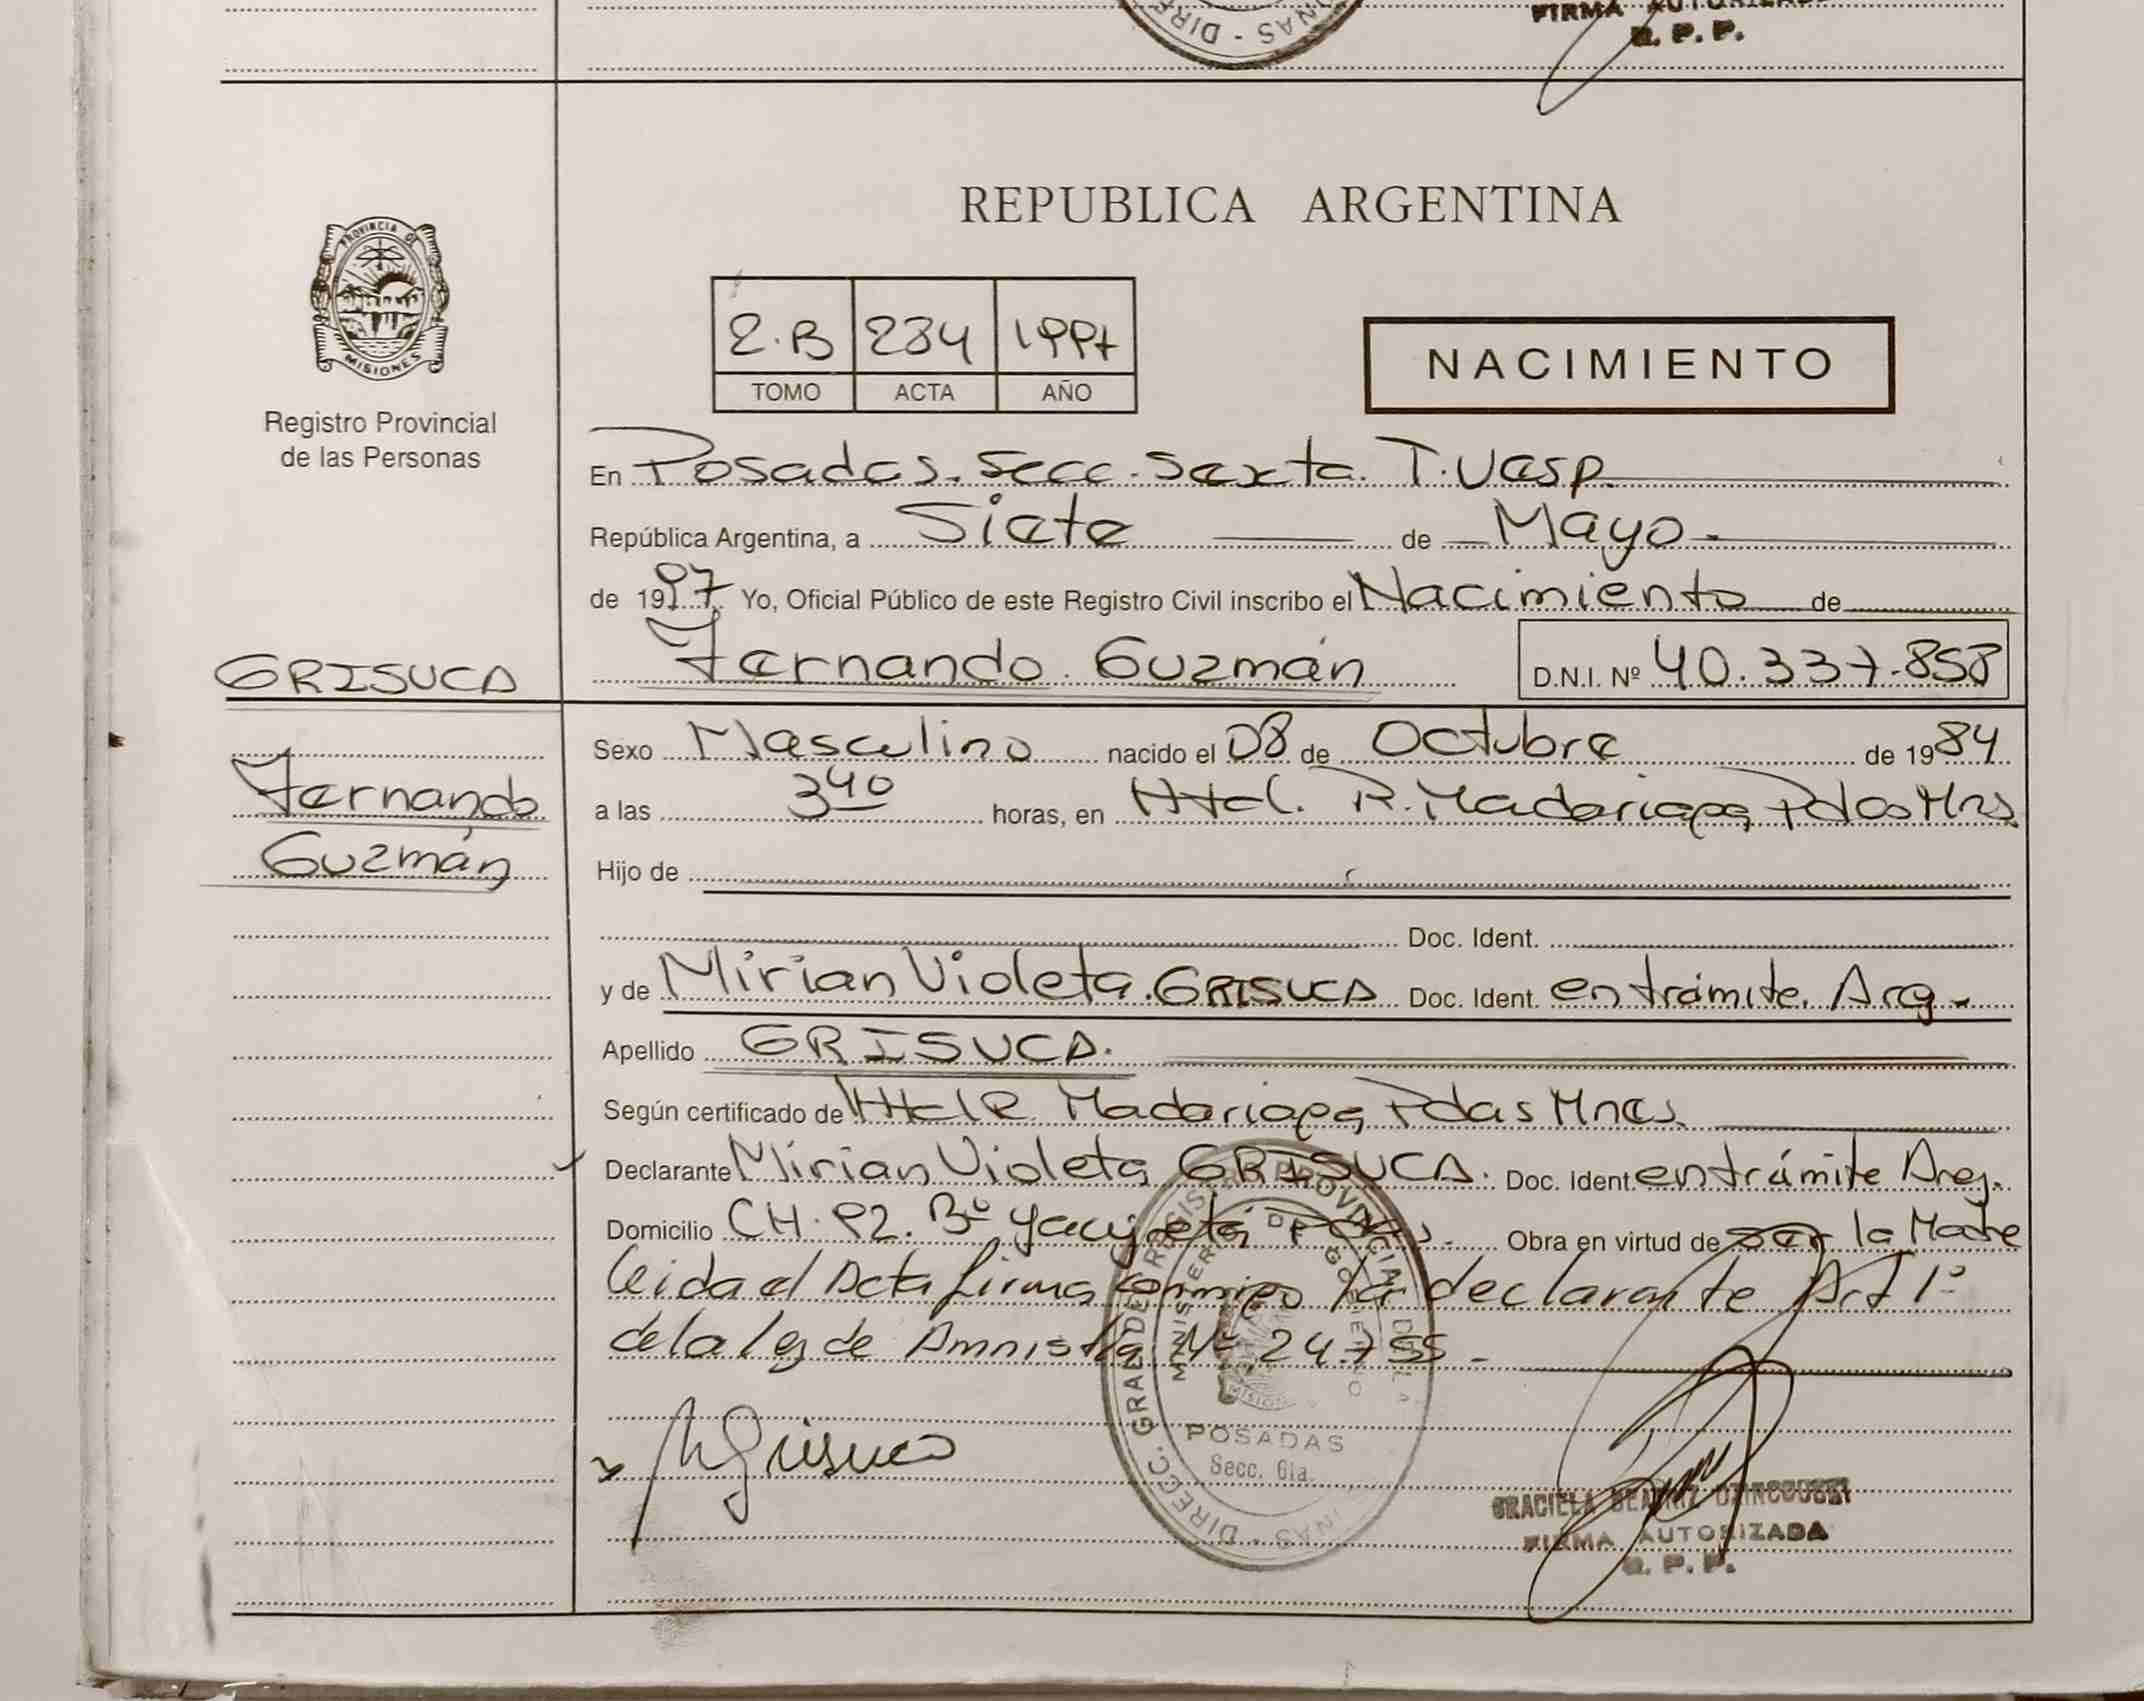 FIRMA AUTORIZADA
R. P. P.
DIRE
NAS
REPUBLICA ARGENTINA
PROVINCIA DE
MISIONES
Registro Provincial
de las Personas
2.B 234 1997
TOMO ACTA AÑO
NACIMIENTO
En Posadas. Secc. Sexta. T. Vesp.
República Argentina, a Siete de Mayo.
de 1997 Yo, Oficial Público de este Registro Civil inscribo el Nacimiento de
GRISUCA
Fernando Guzmán D.N.I. Nº 40.337.858
Fernando
Guzmán
Sexo Masculino nacido el 08 de Octubre de 1984
a las 3 40 horas, en Htal. R. Madariaga, Pdas Mns.
Hijo de
Doc. Ident.
y de Mirian Violeta GRISUCA Doc. Ident. en trámite. Arg.
Apellido GRISUCA.
Según certificado de Htal R. Madariaga, Pdas Mnes.
Declarante Mirian Violeta GRISUCA. Doc. Ident. en trámite Arg.
Domicilio CH. 92. Bº Yacyretá, Pdas. Obra en virtud de ser la Madre
leida el Acta firma conmigo la declarante Art 1º
de la ley de Amnistía Nº 24.755.
MGrisuca
DIRECC. GRAL DE REGISTRO PROVINCIAL DE L
MINISTERIO DE GOBIERNO
POSADAS
Secc. 6ta.
NAS
GRACIELA BEATRIZ
FIRMA AUTORIZADA
R. P. P.